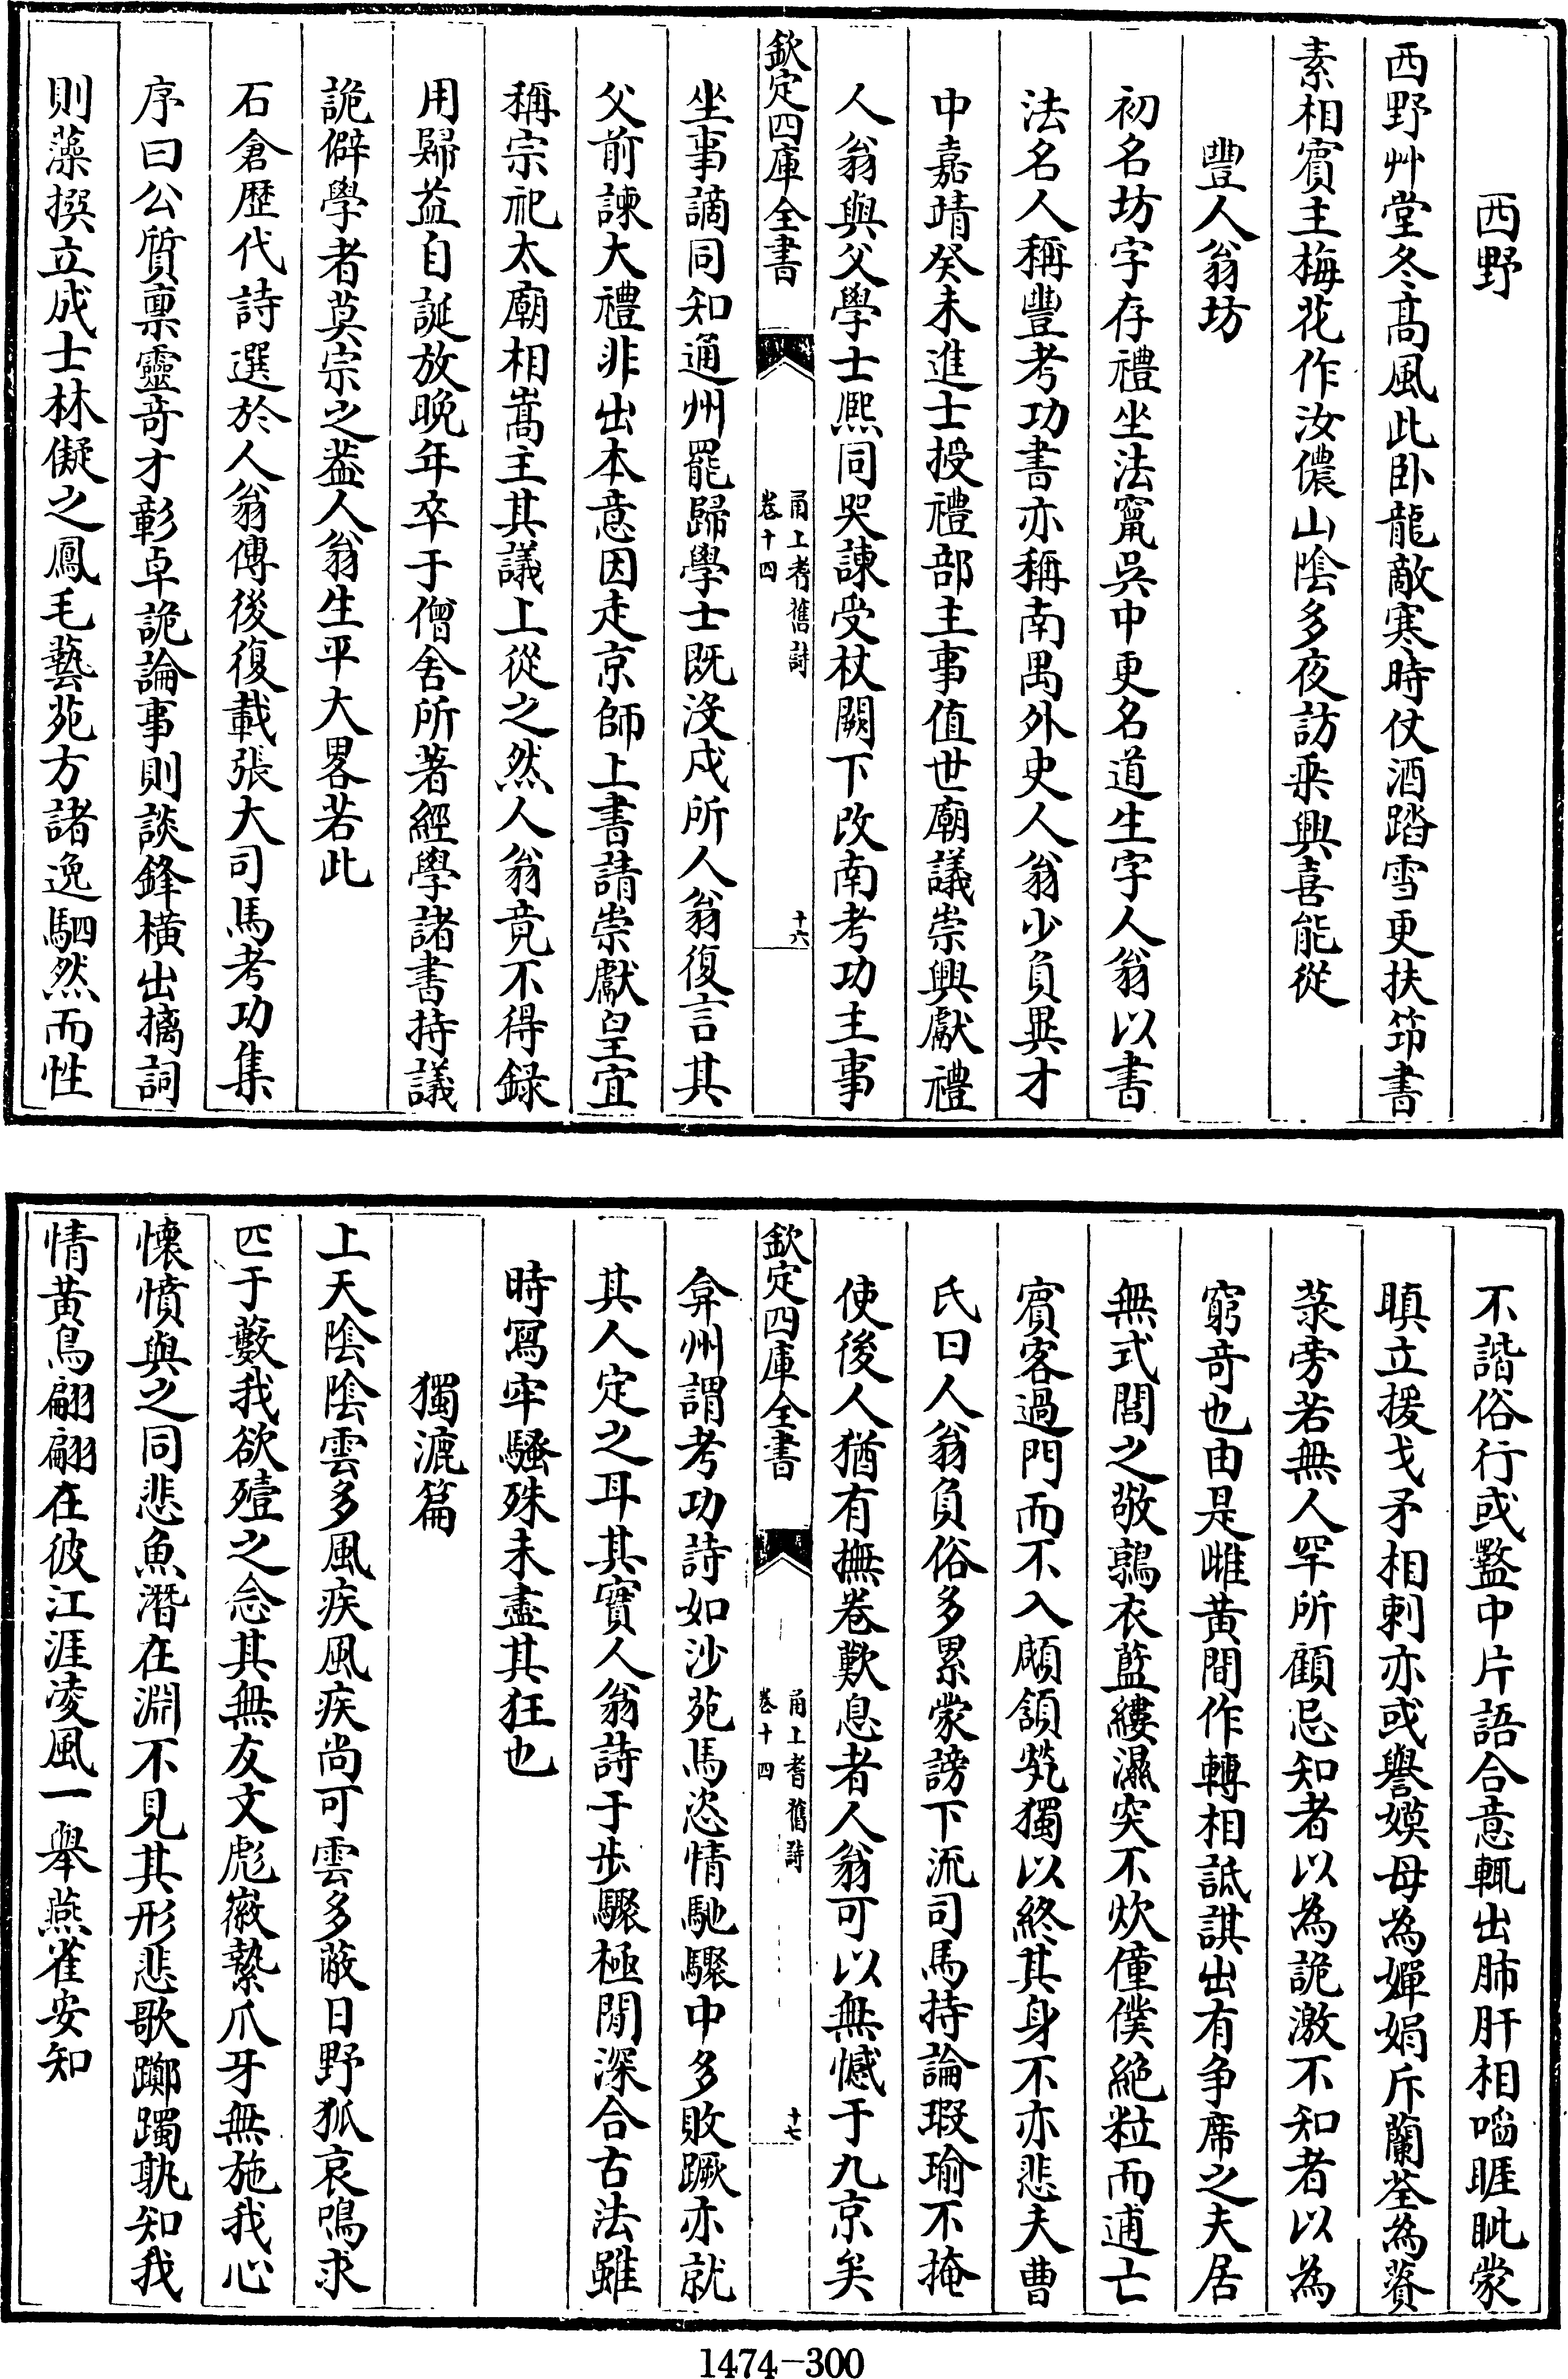 西野
西野艸堂冬髙風此卧龍敵寒時仗酒踏雪更扶笻書
素相賓主梅花作汝儂山陰多夜訪乗興喜能從
豐人翁坊
初名坊字存禮坐法竄呉中更名道生字人翁以書
法名人稱豐考功書亦稱南禺外史人翁少負異才
中嘉靖癸未進士授禮部主事值世廟議崇興獻禮
人翁與父學士熈同哭諫受杖闕下改南考功主事
欽定四庫全書
甬上耆舊詩
卷十四
十六
坐事謫同知通州罷歸學士既沒戍所人翁復言其
父前諫大禮非出本意因走京師上書請崇獻皇宜
稱宗祀太廟相嵩主其議上從之然人翁竟不得録
用歸益自誕放晚年卒于僧舎所著經學諸書持議
詭僻學者莫宗之葢人翁生平大畧若此
石倉歴代詩選於人翁傳後復載張大司馬考功集
序曰公質禀靈竒才彰卓詭論事則談鋒横出摛詞
則藻撰立成士林儗之鳳毛藝苑方諸逸駟然而性
不諧俗行或盭中片語合意輒出肺肝相啗睚眦蒙
瞋立援戈矛相刺亦或譽嫫母為嬋娟斥蘭荃為薋
菉旁若無人罕所顧忌知者以為詭激不知者以為
窮竒也由是雌黄間作轉相詆諆出有争席之夫居
無式閭之敬鶉衣藍縷濕突不炊僮僕絶粒而逋亡
賔客過門而不入顑頷煢獨以終其身不亦悲夫曹
氏曰人翁負俗多累蒙謗下流司馬持論瑕瑜不掩
使後人猶有撫卷歎息者人翁可以無憾于九京矣
欽定四庫全書
甬上耆舊詩
卷十四
十七
弇州謂考功詩如沙苑馬恣情馳驟中多敗蹶亦就
其人定之耳其實人翁詩于步驟極閒深合古法雖
時寫牢騷殊未盡其狂也
獨漉篇
上天陰陰雲多風疾風疾尚可雲多蔽日野狐哀鳴求
匹于藪我欲殪之念其無友文彪徽縶爪牙無施我心
懐憤與之同悲魚潛在淵不見其形悲歌躑躅孰知我
情黄鳥翩翩在彼江涯凌風一舉燕雀安知
1474-300